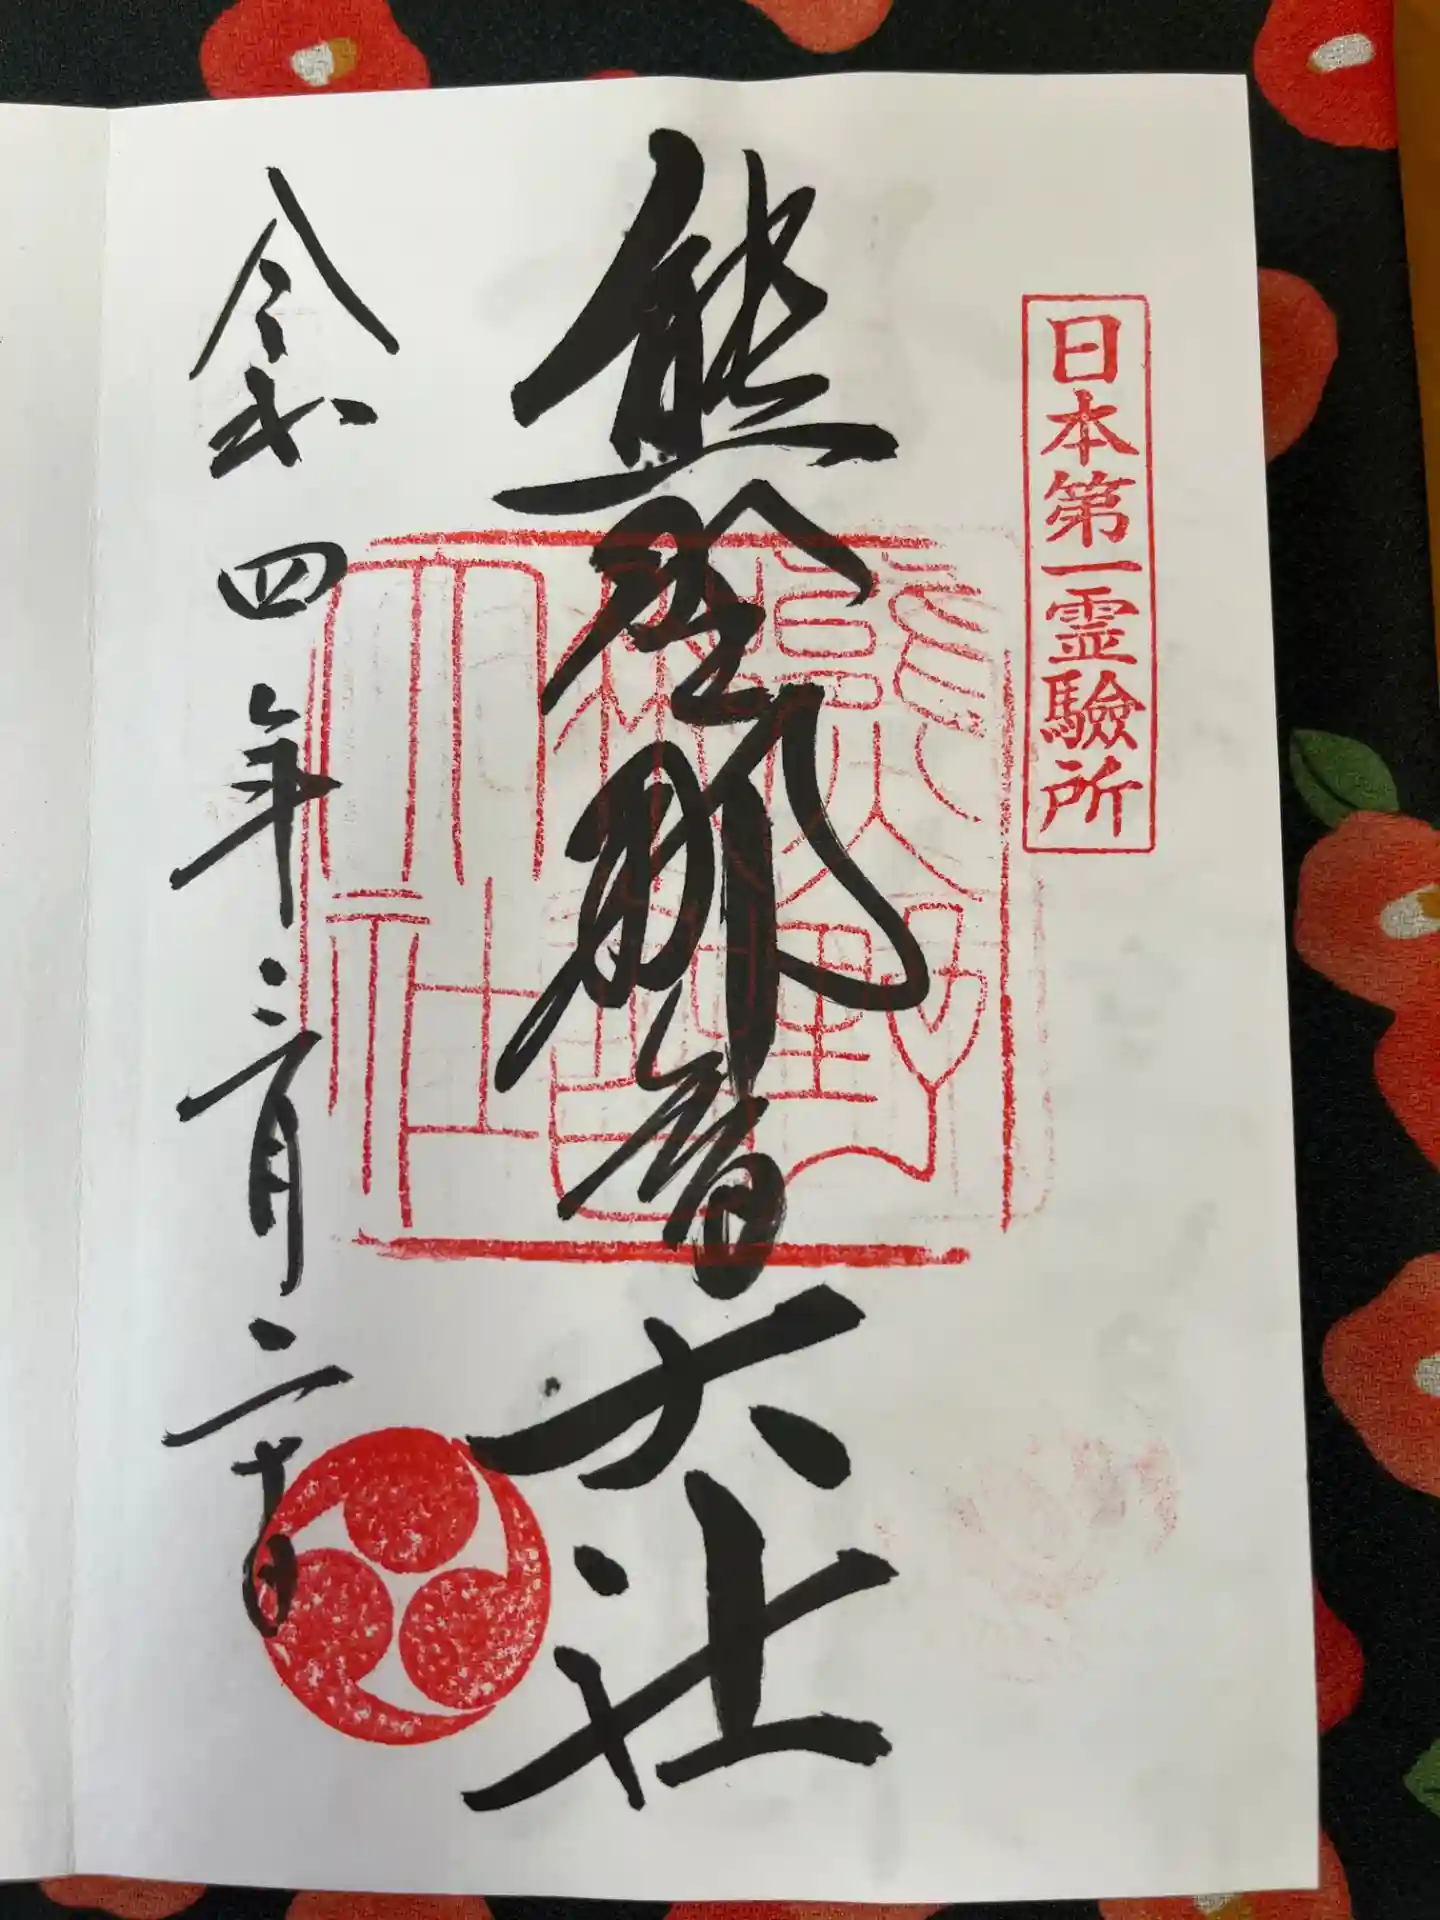 日本第一霊驗所
熊野那智大社
令和四年三月二十日
熊野
那智
大社